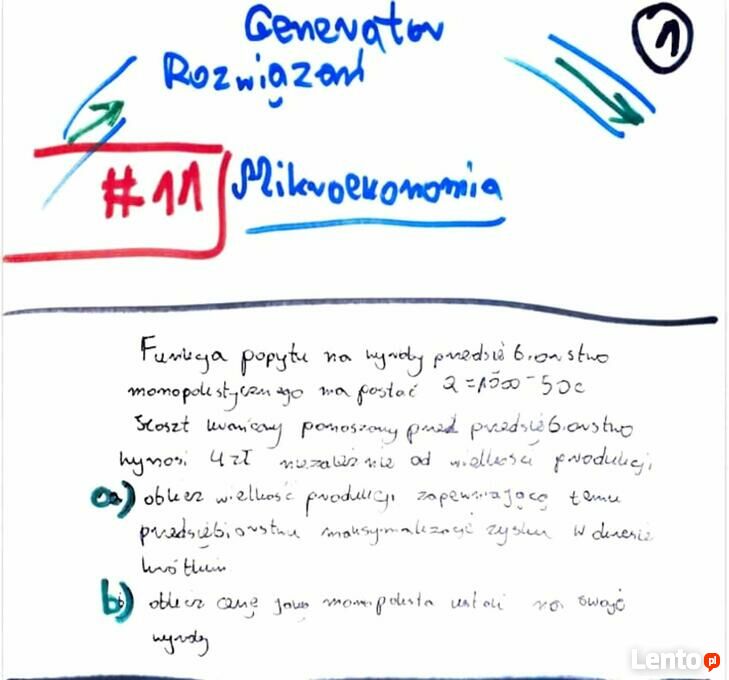 Generator
Rozwiązań
1
#11 Mikroekonomia
Funkcja popytu na wyroby przedsiębiorstwa
monopolistycznego ma postać Q=1000-50c
Koszt krańcowy ponoszony przez przedsiębiorstwo
wynosi 4 zł niezależnie od wielkości produkcji
a) oblicz wielkość produkcji zapewniającą temu
przedsiębiorstwu maksymalizację zysku w okresie
krótkim
b) oblicz cenę jaką monopolista ustali na swoje
wyroby
Lento.pl